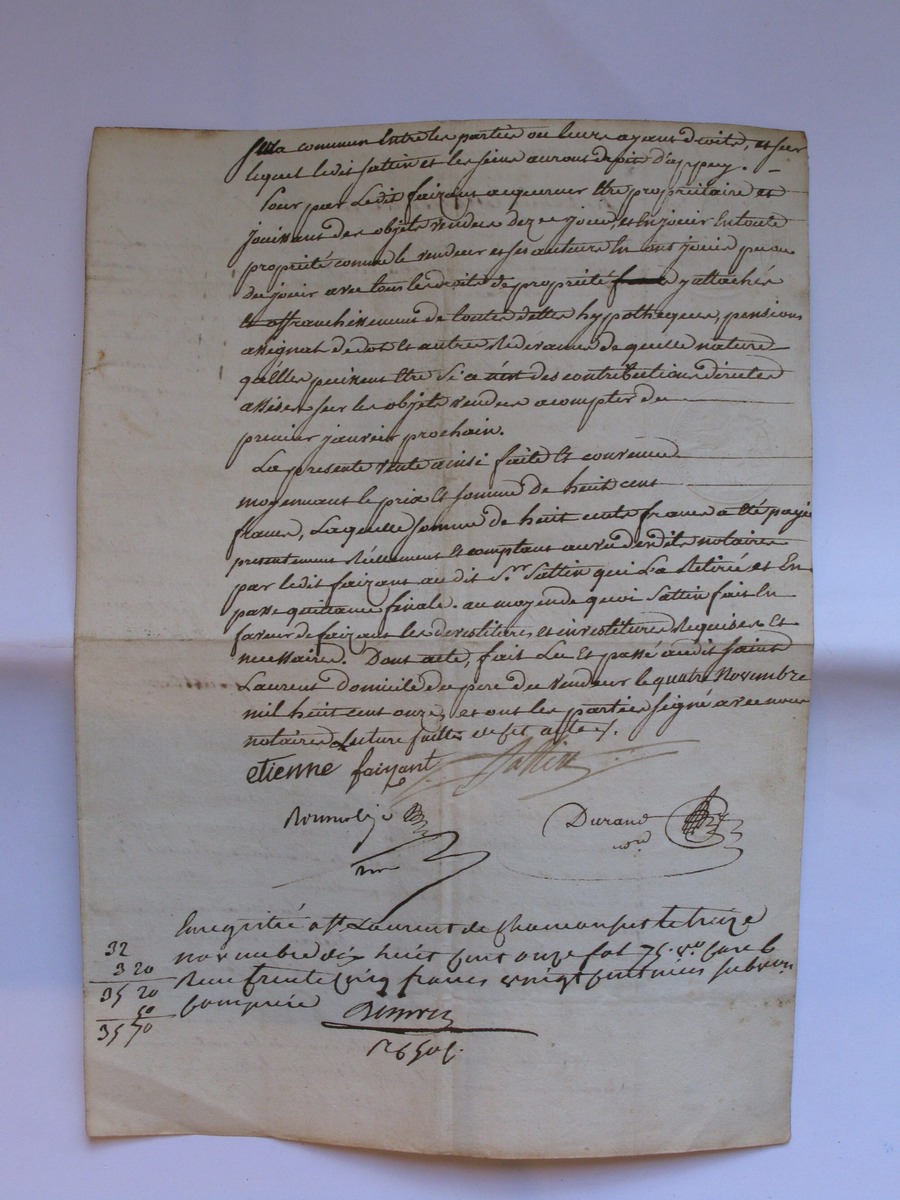 sera commun Entre les parties ou leurs ayant droits, et sur
lequel ledit Sattin et les siens auront droit d'appuy.
Pour par Ledit faizant acquereur Etre proprietaire et
jouissant des objets vendus dez ce jour, et En jouir En toute
propriété comme le vendeur et ses auteurs En ont jouis pu ou
du jouir avec tous les droits de propriété y attachés
Et affranchissement de toutes dettes hypotheques, pensions
assignat de dot Et autres Redevances de quelle nature
qu'Elles puissent Etre Si a n'est des contributions directes
assises sur les objets vendus a compter du
premier janvier prochain.
La presente vente ainsi faite Et convenue
moyennant le prix Et somme de huit cent
francs, Laquelle somme de huit cents francs a été payée
presentement Réelement Et comptant au vu desdits notaires
par ledit faizant audit Sr. Sattin qui La Retirée et En
passe quittance finale. au moyen de quoi Sattin fait En
faveur de faizant les devestitures et investitures Requises Et
necessaires. Dont acte, fait Lu Et passé audit Saint
Laurent domicile du pere du vendeur le quatre Novembre
mil huit cent onze, et ont les parties signé avec nous
notaires lecture faite
etienne faizant Sattin
Durand
not.
Enregistré a St. Laurent de Chamousset le treize
novembre dix huit cent onze fol 75. vo. Case 6
Reçu trente cinq francs vingt centimes subvon.
comprise
32
3 20
35 20
50
35 70